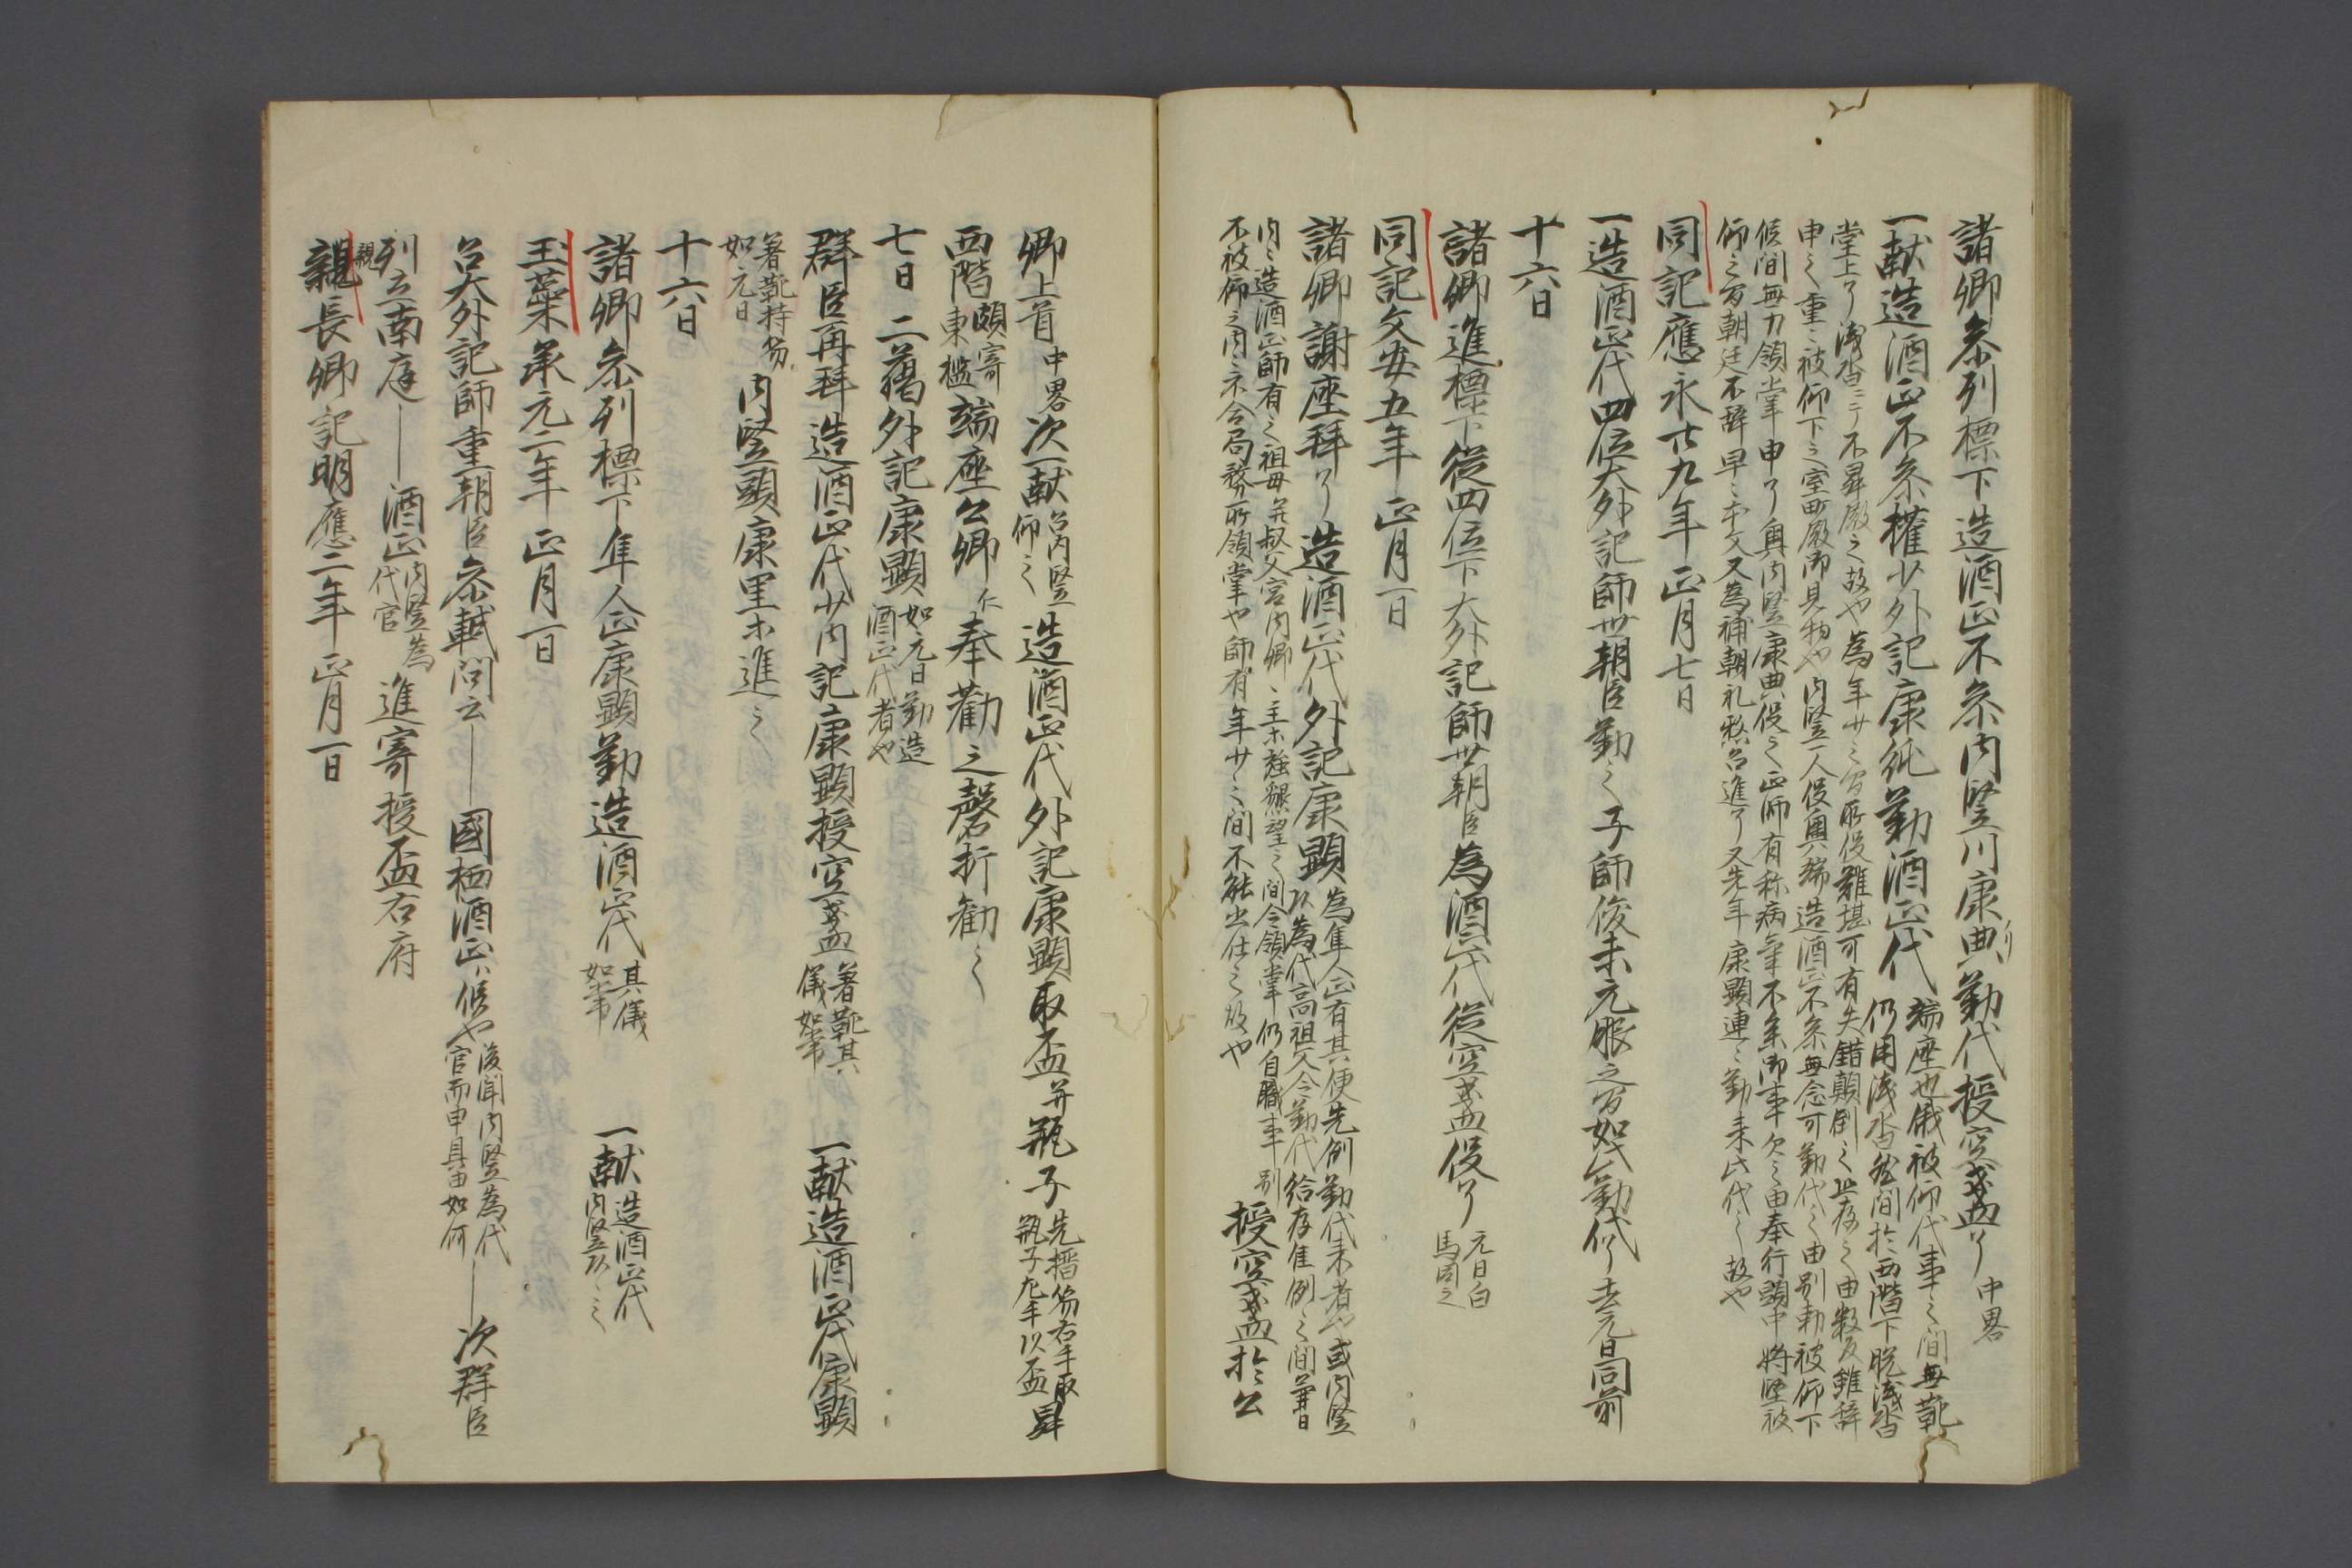 諸卿参列標下造酒正不参内竪川康典勤代授空盞了 中畧
一献造酒正不参権少外記康純勤酒正代
端座也俄被仰代事之間無靴
仍用浅沓然間於西階下脱浅沓
堂上了浅沓ニテ不昇殿之故や為年廿之間所役難堪可有失錯顛倒之由存之由数反雖辞
申之重々被仰下之室町殿御見物や内竪一人役奥端造酒正不参無念可勤代之由別勅被仰下
候間無力領掌申了奥内竪康典役之正師有称病気不参御事欠之由奉行頭中将竪被
仰之間朝廷不辞早々本文又為補朝礼愁召進了又先年康顕連々勤来此代之故や
同記應永廿九年正月七日
一造酒正代四位大外記師世朝臣勤之子師俊未元服之間如此勤代了去元日同前
十六日
諸卿進標下従四位下大外記師世朝臣為酒正代従空盞役了
元日白
馬同之
同記文安五年正月一日
諸卿謝座拜了造酒正代外記康顕
為隼人正有其便先例勤代来者や或内竪
以為代高祖父今勤代給存佳例之間兼日
内々造酒正師有之祖母并叔父宮内卿之主等強懇望之間令領掌仍自職事別
不被仰之内々示合局務所領掌や師有年廿之間不能出仕之故や
授空盞於公
卿上首中畧次一献
召内竪
仰之
造酒正代外記康顕取盃并瓶子
先搢笏右手取
瓶子左手以盃昇
西階
頗寄
東檻
端座公卿仁奉勸之磬折勧之
七日二﨟外記康顕
如元日勤造
酒正代者や
群臣再拜造酒正代少内記康顕授空盞
著靴其
儀如常
一献造酒正代康顕
著靴持笏
如元日
内竪頭康里等進之
十六日
諸卿参列標下隼人正康顕勤造酒正代
其儀
如常
一献
造酒正代
内竪以之
玉蘂承元二年正月一日
召大外記師重朝臣参軾問云―國栖酒正候や
後聞内竪為代
官而申具由如何
―次群臣
列立南庭―酒正
内竪為
代官
進寄授盃右府
親長卿記明應二年正月一日